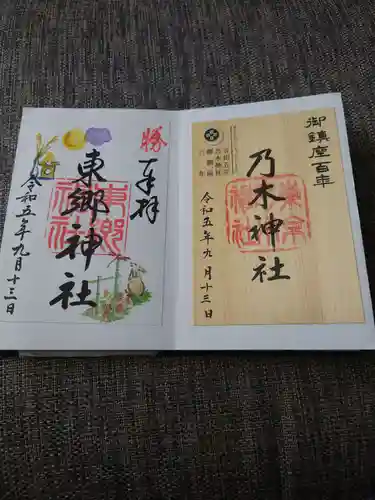 御鎮座百年
乃木神社
令和五年九月十三日
勝
奉拝
東郷神社
令和五年九月十三日